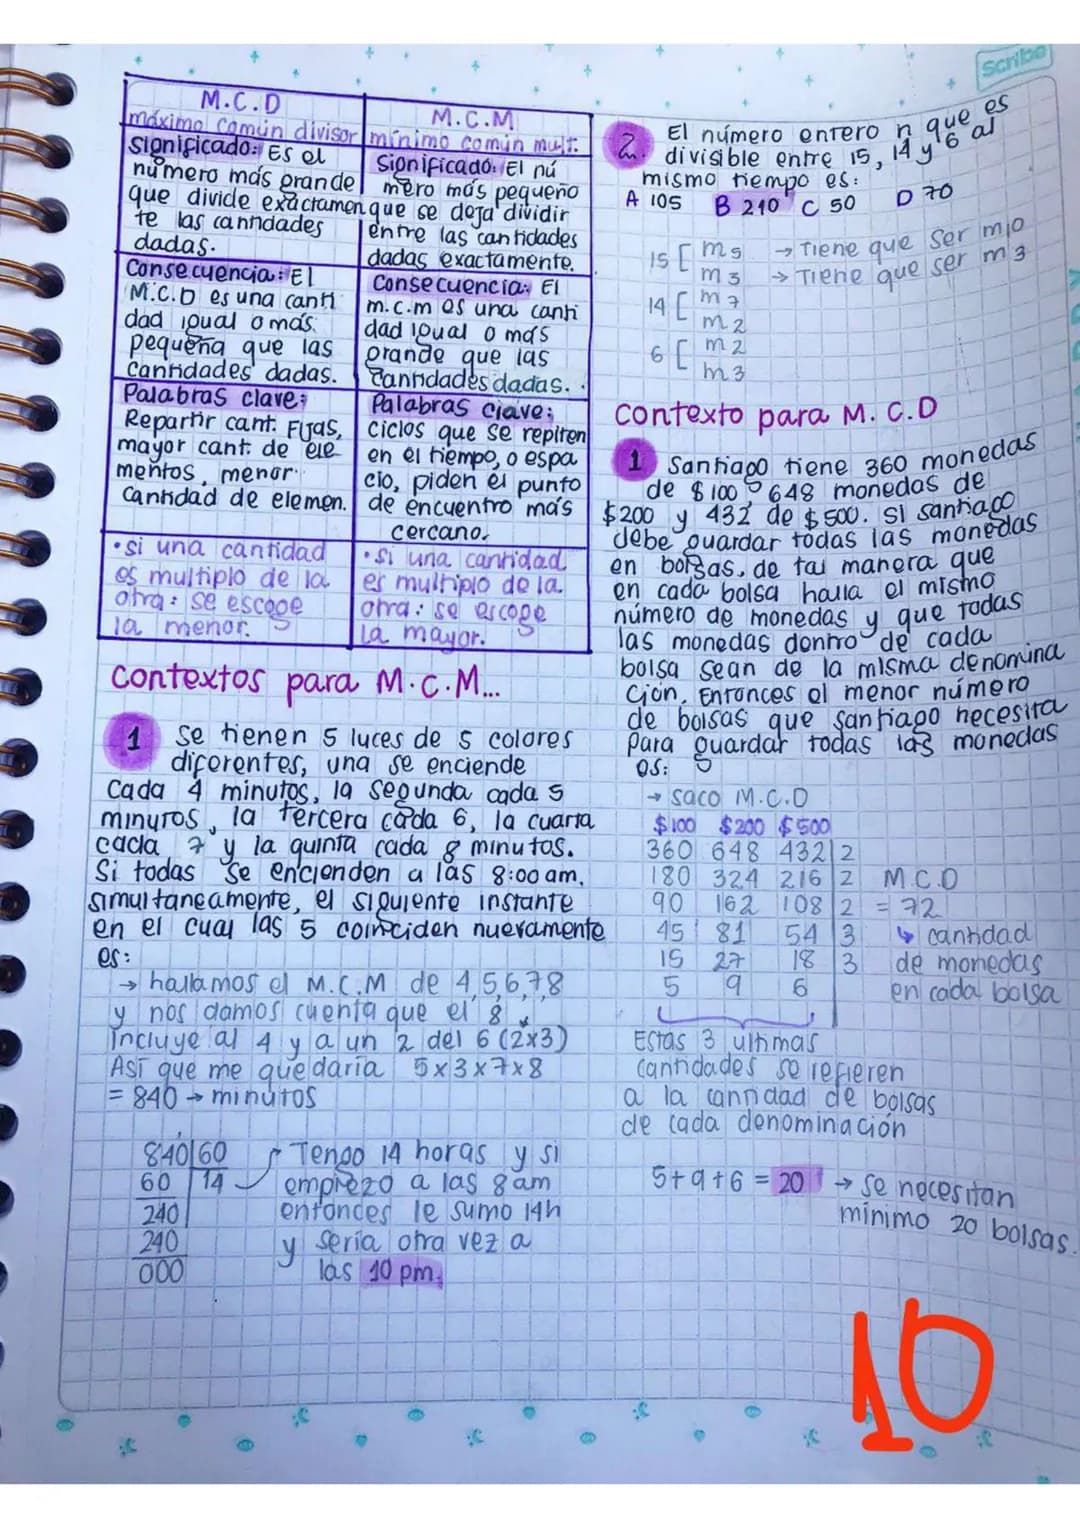 Scribe
M.C.D
máximo común divisor
Significado: Es el
número más grande
que divide exactamen
te las cantidades
dadas.
Consecuencia: El
M.C.D es una canti
dad igual o más
pequeña que las
cantidades dadas.
Palabras clave:
Repartir cant. Fijas,
mayor cant. de ele
mentos, menor
cantidad de elemen.
•si una cantidad
es multiplo de la
otra: se escoge
la menor.
M.C.M
mínimo común mult.
Significado: El nú
mero más pequeño
que se deja dividir
entre las cantidades
dadas exactamente.
Consecuencia: El
m.c.m es una canti
dad igual o más
grande que las
cantidades dadas.
Palabras clave:
ciclos que se repiten
en el tiempo, o espa
cio, piden el punto
de encuentro más
cercano.
•Si una cantidad
es multiplo de la
otra: se escoge
la mayor.
contextos para M.C.M...
1 Se tienen 5 luces de 5 colores
diferentes, una se enciende
Cada 4 minutos, la segunda cada 5
minutos, la tercera cada 6, la cuarta
cada 7 y la quinta cada 8 minutos.
Si todas se encienden a las 8:00 am,
simultaneamente, el siguiente instante
en el cual las 5 coinciden nuevamente
es:
→ hallamos el M.C.M de 4,5,6,7,8
y nos damos cuenta que el 8
Incluye al 4 y a un 2 del 6 (2x3)
Así que me quedaría 5x3x7x8
= 840 → minutos
840|60
60 14
240
240
000
Tengo 14 horas y si
empiezo a las 8am
entonces le sumo 14h
y sería otra vez a
las 10 pm.
2. El número entero n que es
divisible entre 15, 14 y 6 al
mismo tiempo es:
A 105 B 210 C 50 D 70
15 [ m5 → Tiene que ser m10
m3 → Tiene que ser m3
14 [ m7
m2
6 [ m2
m3
contexto para M.C.D
1 Santiago tiene 360 monedas
de $100, 648 monedas de
$200 y 432 de $500. Si santiago
debe guardar todas las monedas
en bolsas, de tal manera que
en cada bolsa halla el mismo
número de monedas y que todas
las monedas dentro de cada
bolsa sean de la misma denomina
ción. Entonces el menor número
de bolsas que santiago necesita
para guardar todas las monedas
es:
→ saco M.C.D
$100 $200 $500
360 648 432|2
180 324 216|2 M.C.D
90 162 108|2 = 72
45 81 54|3 ↳ cantidad
15 27 18|3 de monedas
5 9 6 en cada bolsa
Estas 3 ultimas
cantidades se refieren
a la cantidad de bolsas
de cada denominación
5+9+6 = 20 → se necesitan
mínimo 20 bolsas.
10